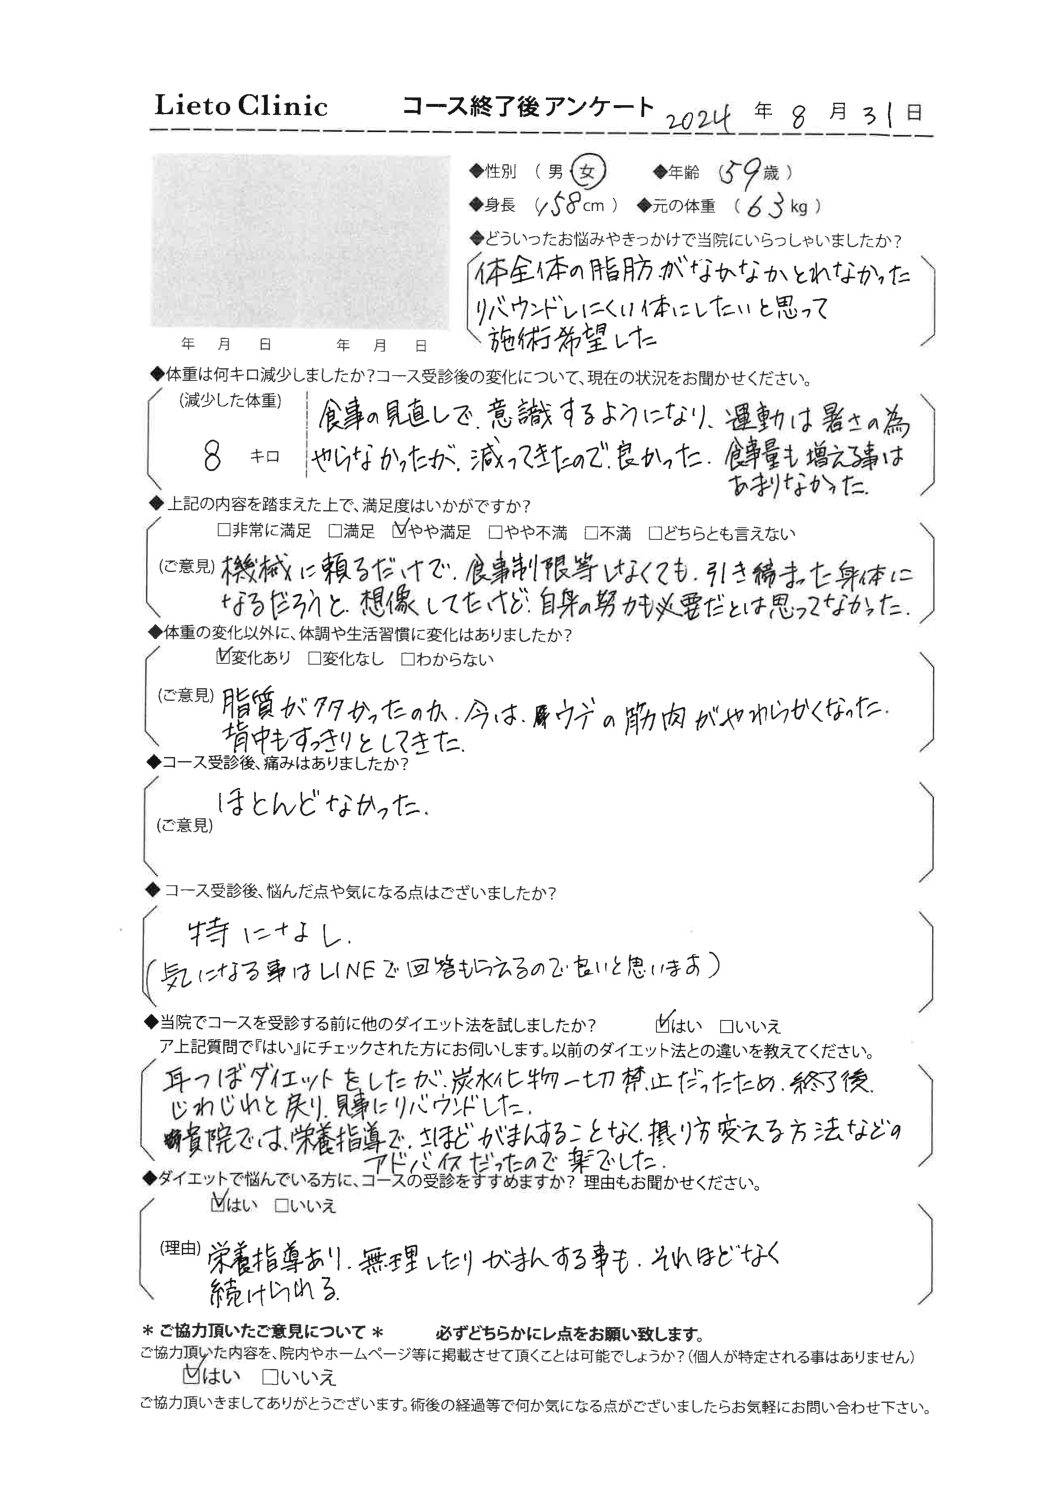 Lieto Clinic コース終了後アンケート 2024 年 8 月 31 日
◆性別 ( 男 女 ) ◆年齢 ( 59 歳 )
◆身長 ( 158 cm ) ◆元の体重 ( 63 kg )
◆どういったお悩みやきっかけで当院にいらっしゃいましたか?
体全体の脂肪がなかなかとれなかった
リバウンドしにくい体にしたいと思って
施術希望した
年 月 日 年 月 日
◆体重は何キロ減少しましたか?コース受診後の変化について、現在の状況をお聞かせください。
(減少した体重)
8 キロ
食事の見直しで、意識するようになり、運動は暑さの為
やらなかったが、減ってきたので、良かった. 食事量も増える事は
あまりなかった.
◆ 上記の内容を踏まえた上で、満足度はいかがですか?
□非常に満足 □満足 ☑やや満足 □やや不満 □不満 □どちらとも言えない
(ご意見) 機械に頼るだけで、食事制限等しなくても、引き締まった身体に
なるだろうと、想像してたけど、自身の努力も必要だとは思ってなかった.
◆体重の変化以外に、体調や生活習慣に変化はありましたか?
☑変化あり □変化なし □わからない
(ご意見) 脂質が多かったのか、今は、ウデの筋肉がやわらかくなった.
背中もすっきりとしてきた.
◆コース受診後、痛みはありましたか?
ほとんどなかった.
(ご意見)
◆ コース受診後、悩んだ点や気になる点はございましたか?
特になし.
(気になる事はLINEで回答もらえるので良いと思います)
◆当院でコースを受診する前に他のダイエット法を試しましたか? ☑はい □いいえ
ア上記質問で『はい』にチェックされた方にお伺いします。以前のダイエット法との違いを教えてください。
耳つぼダイエットをしたが、炭水化物一切禁止だったため、終了後、
じわじわと戻り、見事にリバウンドした.
貴院では、栄養指導で、さほどがまんすることなく、摂り方変える方法などの
アドバイスだったので楽でした.
◆ダイエットで悩んでいる方に、コースの受診をすすめますか? 理由もお聞かせください。
☑はい □いいえ
(理由) 栄養指導あり、無理したりがまんする事も、それほどなく
続けられる.
＊ご協力頂いたご意見について＊ 必ずどちらかにレ点をお願い致します。
ご協力頂いた内容を、院内やホームページ等に掲載させて頂くことは可能でしょうか?(個人が特定される事はありません)
☑はい □いいえ
ご協力頂きましてありがとうございます。術後の経過等で何か気になる点がございましたらお気軽にお問い合わせ下さい。